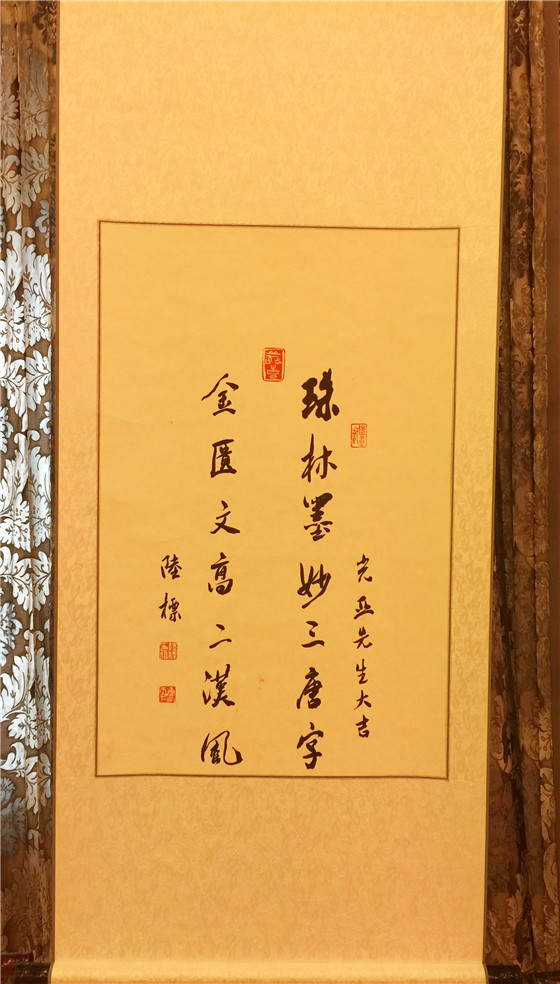 光亞先生大吉
珠林墨妙三唐字
金匱文高二漢風
陸標